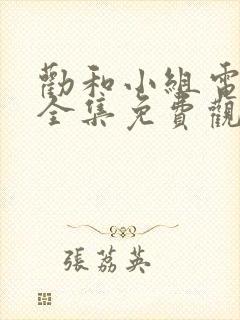 勸和小組電
全集免費觀
張荔英